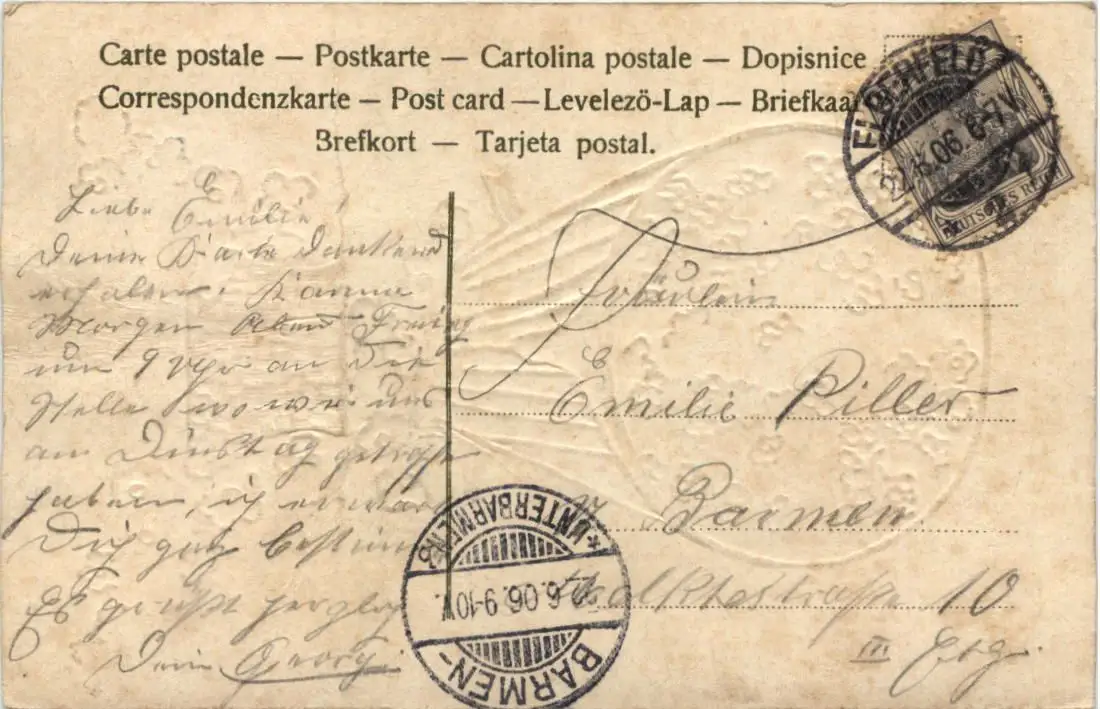 Carte postale — Postkarte — Cartolina postale — Dopisnice
Correspondenzkarte — Post card — Levelezö-Lap — Briefkaar
Brefkort — Tarjeta postal.
ELBERFELD
06. 6-7V.
DEUTSCHES REICH
Liebe Emilie!
Deine Karte dankend
erhalten. Komme
Morgen Abend Freitag
um 9 Uhr an die
Stelle wo wir uns
am Dinstag getroffen
haben, ich erwarte
Dich ganz bestimmt
Es grüßt herzlich
Dein Georg.
Fräulein
Emilie Piller
Barmen.
straße 10
III Etg.
* UNTERBARMEN *
.6.06.9-10V.
BARMEN-